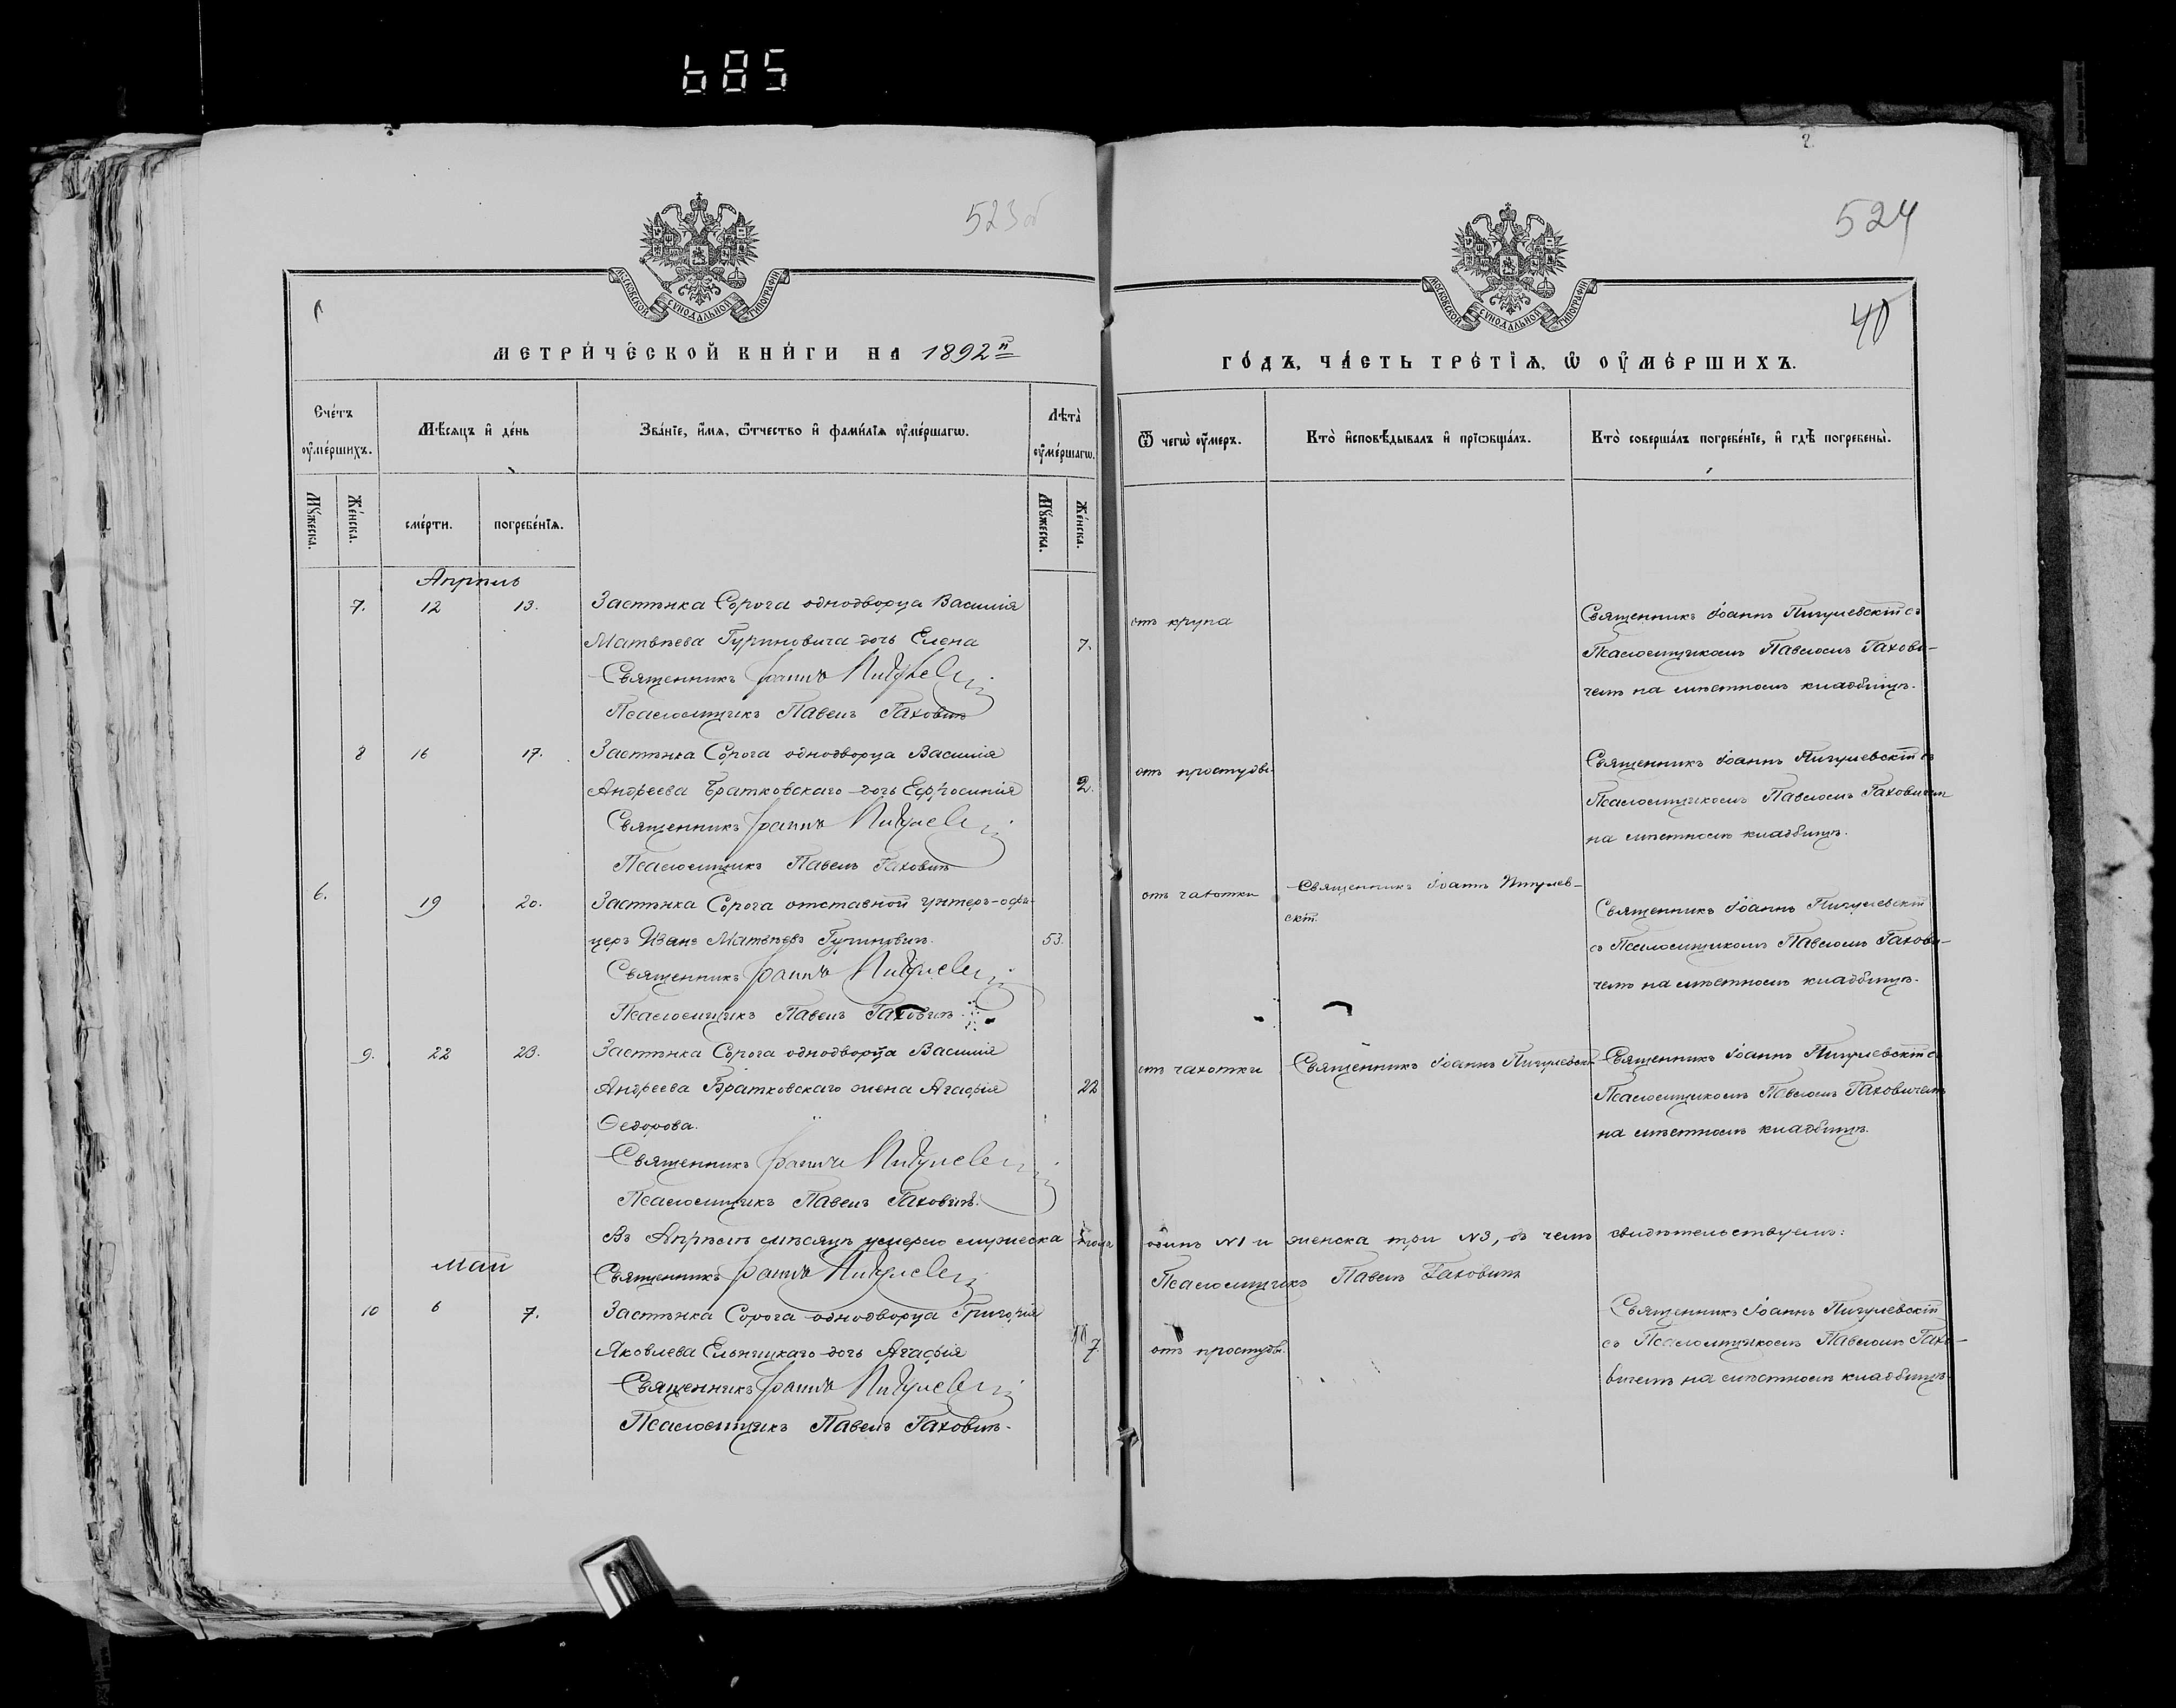 685
523 об
524
40
МОСКОВСКОЙ СУНОДАЛЬНОЙ ТИПОГРАФІИ
МОСКОВСКОЙ СУНОДАЛЬНОЙ ТИПОГРАФІИ
МЕТРИ́ЧЕСКОЙ КНИ́ГИ НА 1892й
ГО́ДЪ, ЧА́СТЬ ТРЕ́ТІѦ, Ѡ҆ ОУ҆МЕ́РШИХЪ.
Сче́тъ оу҆ме́ршихъ.
Мѣ́сяцъ и҆ де́нь
Зва́нїе, и҆́мѧ, ѻ҆́тчество и҆ фами́лїѧ оу҆ме́ршагѡ.
Лѣта̀ оу҆ме́ршагѡ.
Ѿ чегѡ̀ оу҆́меръ.
Кто̀ и҆сповѣ́дывалъ и҆ прїѡбща́лъ.
Кто̀ соверша́лъ погребе́нїе, и҆ гдѣ̀ погребены̀.
Мꙋ́жеска.
Же́нска.
сме́рти.
погребе́нїѧ.
Мꙋ́жеска.
Же́нска.
Апрѣль
7. 12 13. Застѣнка Сорога однодворца Василія
Матвѣева Гуриновича дочь Елена 7.
Священникъ Іоаннъ Пигулевскій
Псаломщикъ Павелъ Гаховичъ
отъ крупа
Священникъ Іоаннъ Пигулевскій съ
Псаломщикомъ Павломъ Гахови-
чемъ на мѣстномъ кладбищѣ.
8 16 17. Застѣнка Сорога однодворца Василія
Андреева Братковскаго дочь Ефросинія 2.
Священникъ Іоаннъ Пигулевскій
Псаломщикъ Павелъ Гаховичъ
отъ простуды.
Священникъ Іоаннъ Пигулевскій съ
Псаломщикомъ Павломъ Гаховичемъ
на мѣстномъ кладбищѣ.
6. 19 20. Застѣнка Сорога отставной унтеръ-офи-
церъ Иванъ Матвѣевъ Гуриновичъ. 53.
Священникъ Іоаннъ Пигулевскій
Псаломщикъ Павелъ Гаховичъ.
отъ чахотки
Священникъ Іоаннъ Пигулев-
скій
Священникъ Іоаннъ Пигулевскій
съ Псаломщикомъ Павломъ Гахови-
чемъ на мѣстномъ кладбищѣ.
9. 22 23. Застѣнка Сорога однодворца Василія
Андреева Братковскаго жена Агафія 22
Ѳедорова.
Священникъ Іоаннъ Пигулевскій
Псаломщикъ Павелъ Гаховичъ.
отъ чахотки
Священникъ Іоаннъ Пигулевскій
Священникъ Іоаннъ Пигулевскій съ
Псаломщикомъ Павломъ Гаховичемъ
на мѣстномъ кладбищѣ.
Въ Апрѣлѣ мѣсяцѣ умерло мужеска пола одинъ №1 и женска три №3, въ чемъ свидѣтельствуемъ:
Священникъ Іоаннъ Пигулевскій Псаломщикъ Павелъ Гаховичъ
Май
10 6 7. Застѣнка Сорога однодворца Григорія
Яковлева Ельницкаго дочь Агафія 7
Священникъ Іоаннъ Пигулевскій
Псаломщикъ Павелъ Гаховичъ.
отъ простуды.
Священникъ Іоаннъ Пигулевскій
съ Псаломщикомъ Павломъ Гахо-
вичемъ на мѣстномъ кладбищѣ.